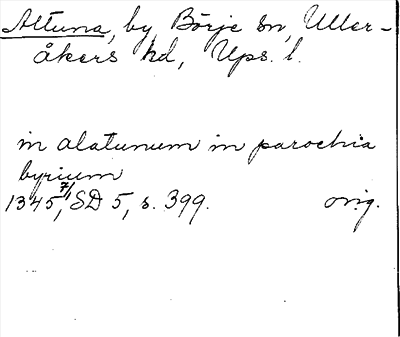 Altuna, by, Börje sn, Uller-
åkers hd, Ups. l.
in alatunum in parochia
byrium
1345 7/1, SD 5, s. 399. orig.